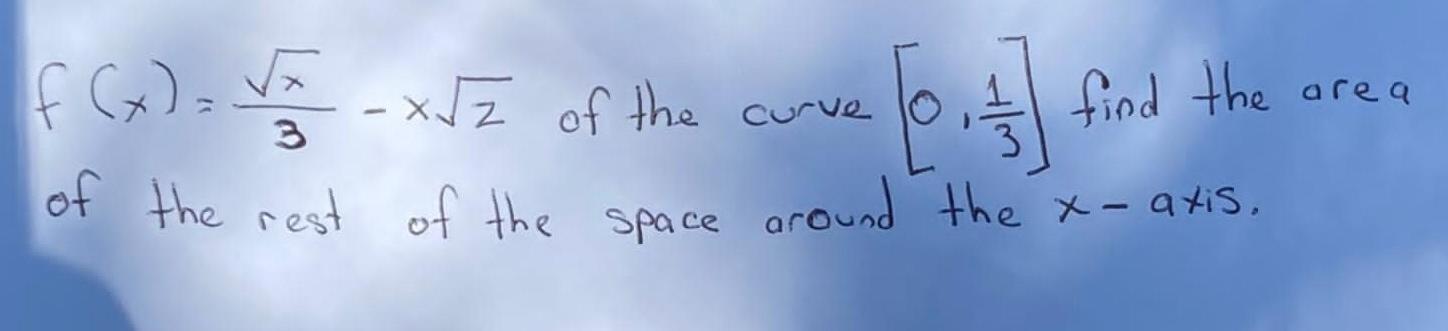 f(x) = √x/3 - x√2 of the curve [0, 1/3] find the area
of the rest of the space around the x-axis.